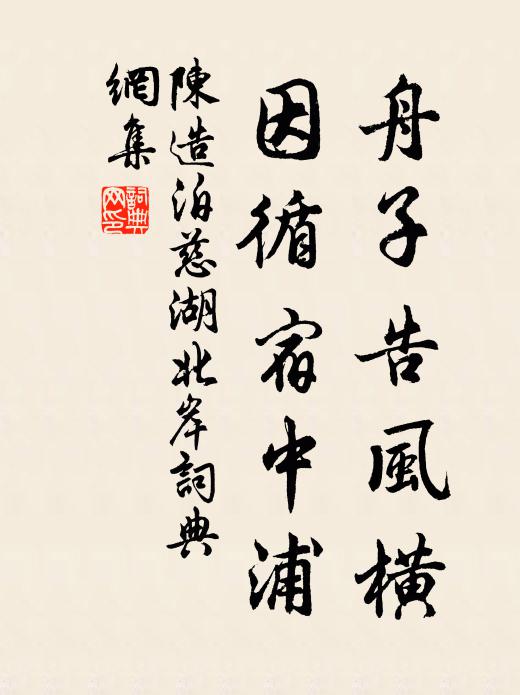 舟子告風橫
因循宿中浦
陳造泊慈湖北岸詞典
網集
詞典
网印